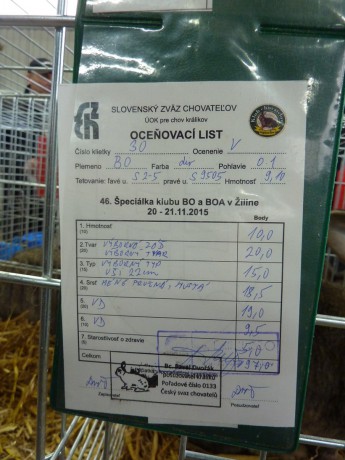 SLOVENSKÝ ZVÄZ CHOVATEĽOV
ÚOK pre chov králikov
OCEŇOVACÍ LIST
Číslo klietky 30 Ocenenie V
Plemeno BO Farba div Pohlavie 0.1
Tetovanie: ľavé u. S 2-5 pravé u. S 9505 Hmotnosť 9,10
46. Špeciálka klubu BO a BOA v Žiline
20 - 21.11.2015 Body
1. Hmotnosť 10,0
2. Tvar VÝBORNÝ TVAR 20,0
3. Typ VÝBORNÝ TYP
UŠI 22 cm 15,0
4. Srsť MÉNĚ PRUŽNÁ, HUSTÁ 18,5
5. VD 19,0
6. VD 9,5
7. Starostlivosť o zdravie 5,0
Celkom 97,0
Bc. Pavel Dvořák
Posuzovatel králíků
Pořadové číslo 0133
Český svaz chovatelů